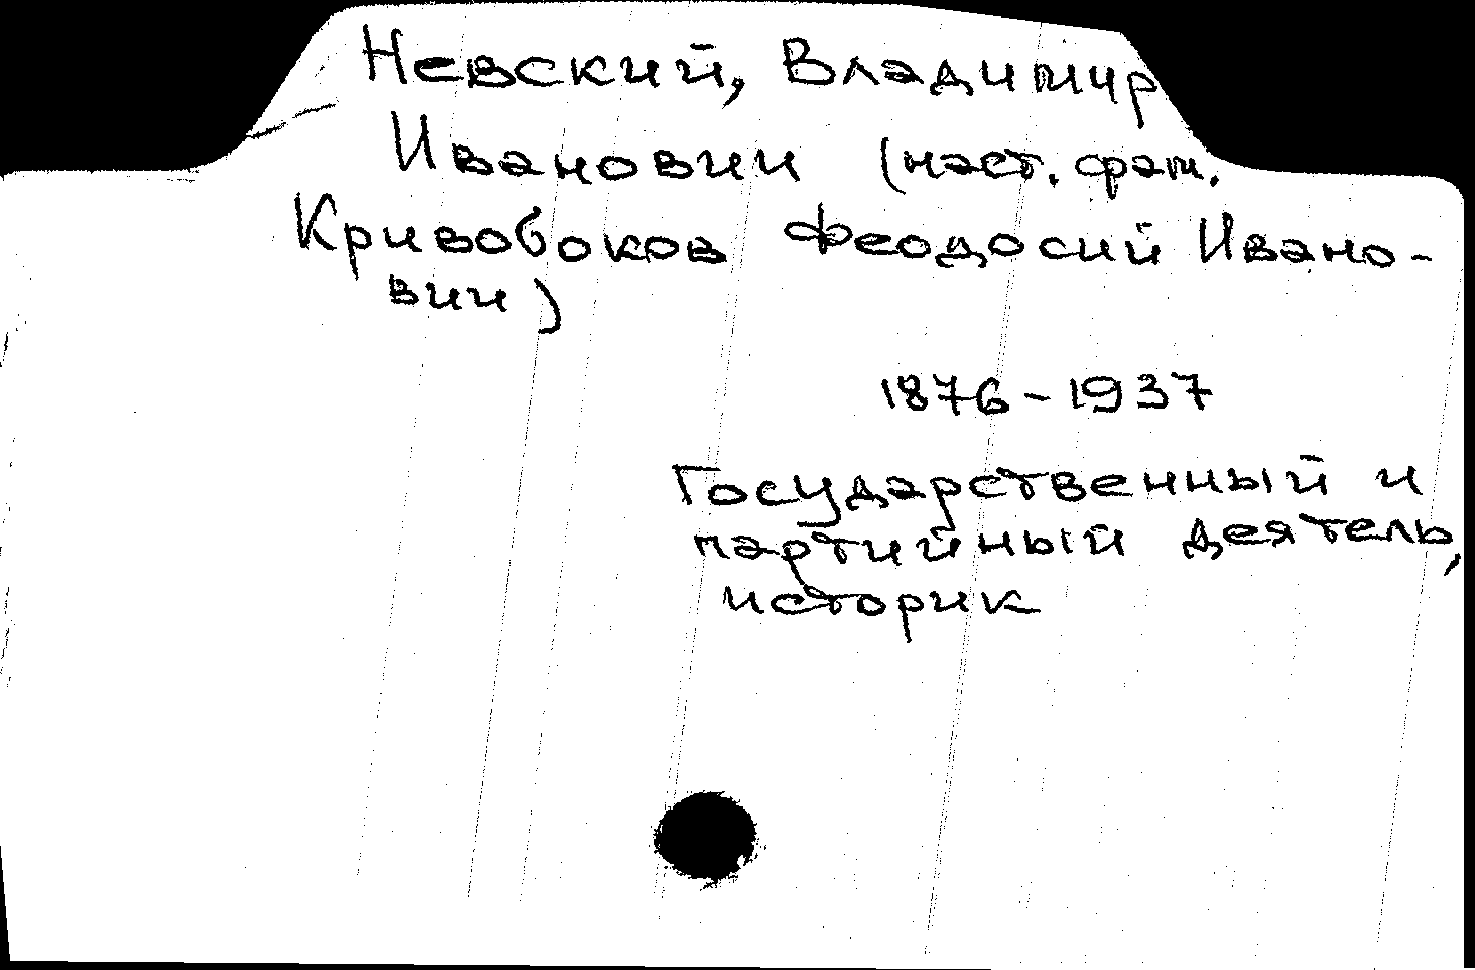 Невский, Владимир
Иванович (наст. фам.
Кривобоков Феодосий Ивано-
вич)
1876-1937
Государственный и
партийный деятель,
историк